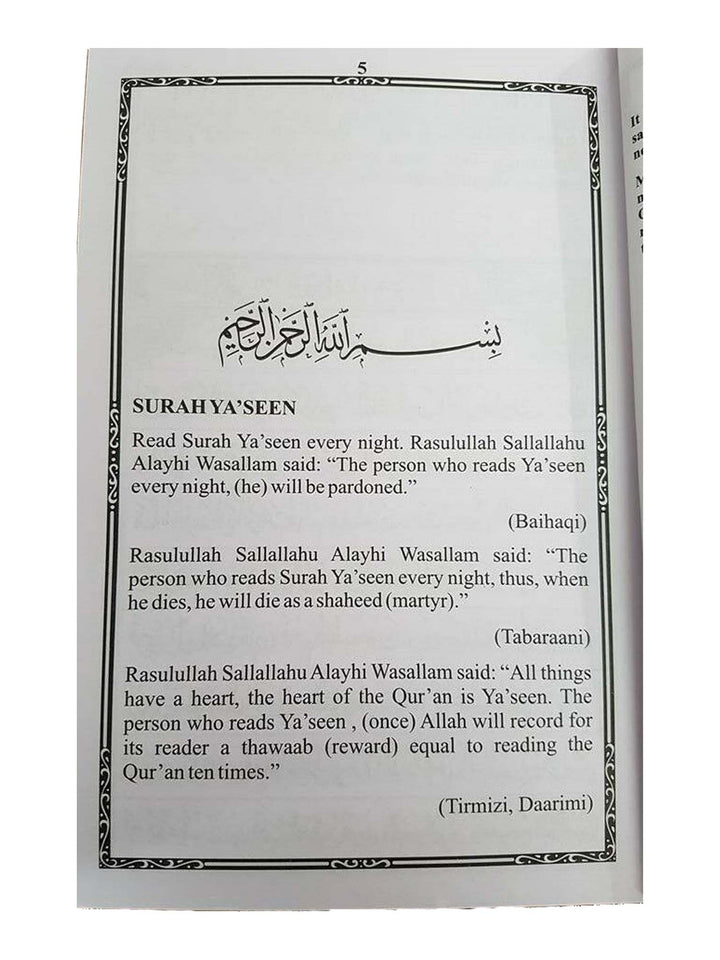 5
بِسْمِ اللهِ الرَّحْمٰنِ الرَّحِيْمِ
SURAH YA'SEEN
Read Surah Ya'seen every night. Rasulullah Sallallahu
Alayhi Wasallam said: “The person who reads Ya'seen
every night, (he) will be pardoned.”
(Baihaqi)
Rasulullah Sallallahu Alayhi Wasallam said: “The
person who reads Surah Ya'seen every night, thus, when
he dies, he will die as a shaheed (martyr).”
(Tabaraani)
Rasulullah Sallallahu Alayhi Wasallam said: “All things
have a heart, the heart of the Qur'an is Ya'seen. The
person who reads Ya'seen , (once) Allah will record for
its reader a thawaab (reward) equal to reading the
Qur'an ten times.”
(Tirmizi, Daarimi)
It